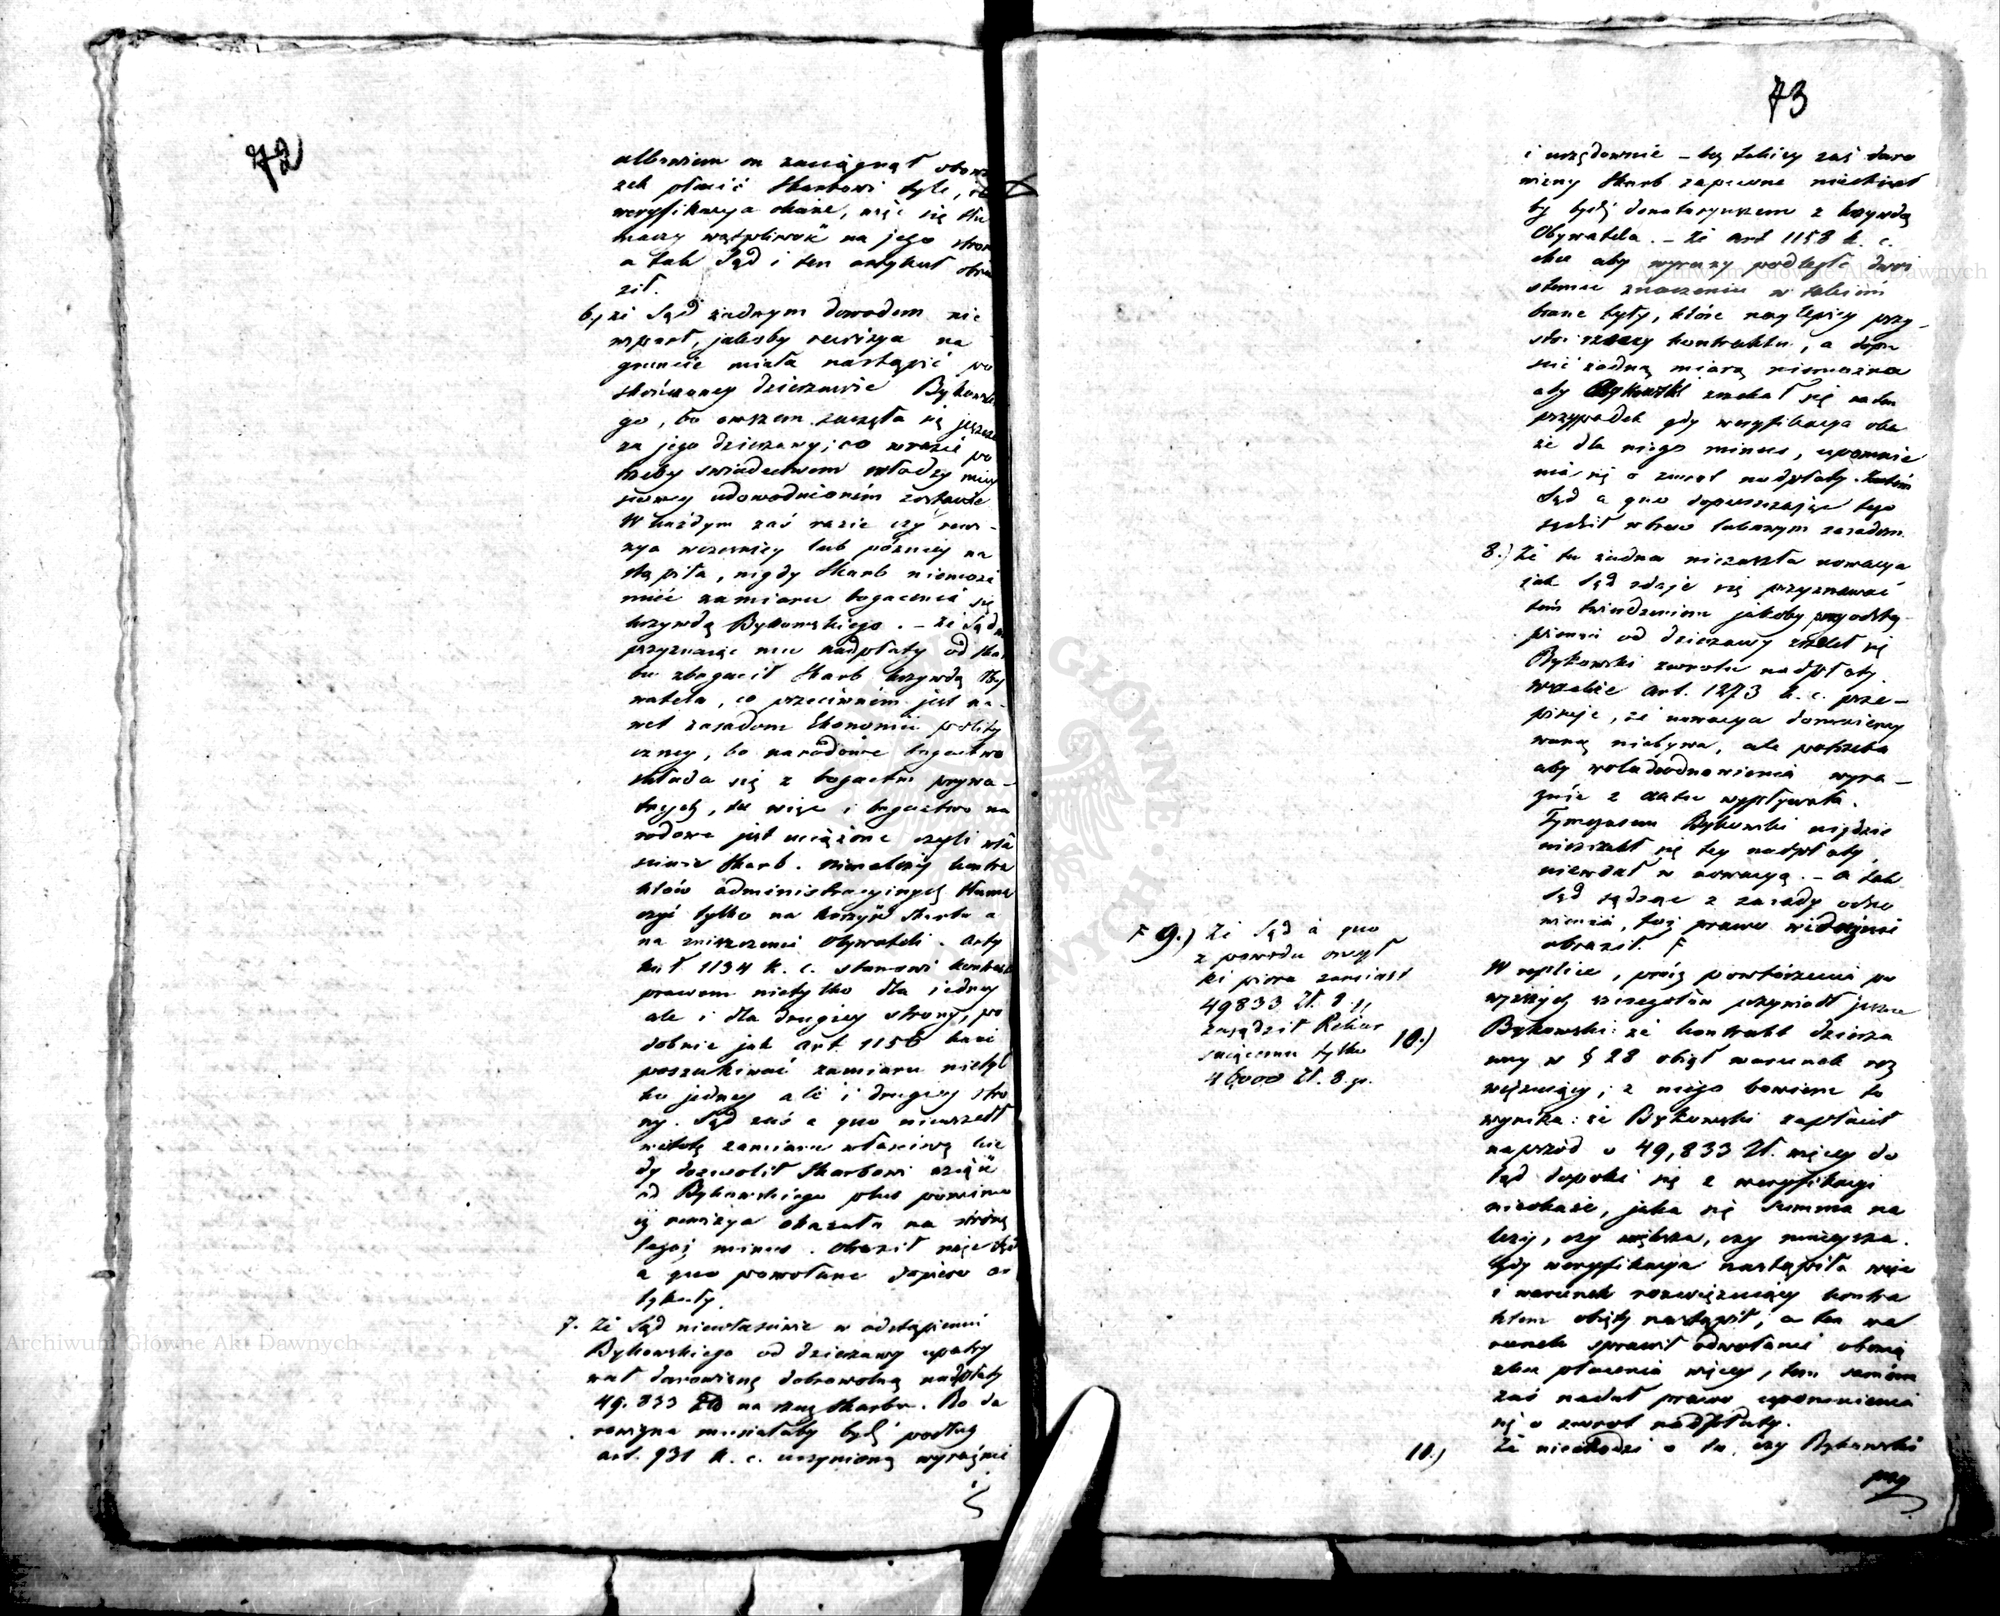 72
albowiem on zaciągnął obowią
zek płacić Skarbowi tyle, ile
weryfikacya okaże, więc się tłu
maczy wątpliwość na jego stronę
a tak Sąd i ten artykuł obra
ził.
6, że Sąd żadnym dowodem nie
wsparł, jakoby rewizya na
gruncie miała nastąpić po
skończoney dzierzawie Bykowskie
go, bo owszem zaczęła się jeszcze
za jego dzierzawy; co w razie po
trzeby swiadectwem władzy miey
scowey udowodnioném zostanie
W każdym zaś razie czy rewi-
zya wczesniey lub późniey na
stąpiła, nigdy Skarb niemoże
mieć zamiaru bogacenia się
krzywdą Bykowskiego. – Że Sąd nie
przyznając mu nadpłaty od Skar
bu zbogacił Skarb krzywdą Oby
watela, co przeciwném jest na-
wet zasadom Ekonomii polity
czney, bo narodowe bogactwo
składa się z bogactw prywa-
tnych, tu więc i bogactwo na
rodowe jest uciążone czyli wła
sciwie Skarb. Nienależy kontra
któw administracyinych tłuma
czyć tylko na korzyść Skarbu a
na zniszczenie Obywateli. Arty
kuł 1134 K. c. stanowi kontrakt
prawem nietylko dla jedney
ale i dla drugiey strony, po
dobnie jak Art. 1156 każe
poszukiwać zamiaru nietyl
ko jedney ale i drugiey stro
ny. Sąd zaś a quo niewszedł
w istotę zamiaru właściwą kie
dy dozwolił Skarbowi wziąść
od Bykowskiego plus pomimo
iż rewizya okazała na stronę
tegoż minus. Obraził więc Sąd
a quo powołane dopiero ar
tykuły.
7. Że Sąd niewłasciwie w odstąpieniu
Bykowskiego od dzierzawy upatry
wał darowiznę dobrowolną nadpłaty
49.833 Zł. na rzecz Skarbu. Bo da
rowizna musiałaby bydź podług
art. 931 K. c. uczynioną wyraźnie
i
73
i urzędownie – bez takiey zaś daro
wizny Skarb zapewne niechciał
by bydź donataryuszem z krzywdą
Obywatela. – Że Art 1158 k. c.
chce aby wyrazy podległe dwoi
stemu znaczeniu w takiém
brane były, które naylepiey przy-
stoi rzeczy kontraktu, a dopu
scić żadną miarą niemożna
aby Bykowski zrzekał się na ten
przypadek gdy weryfikacya oka
że dla niego minus, upomnie
nia się o zwrot nadpłaty. Zatém
Sąd a quo dopuszczając tego
sądził wbrew takowym zasadom.
8.) Że tu żadna niezaszła nowacya
jak Sąd zdaje się przyznawać
tém twierdzeniem jakoby przy odstą-
pieniu od dzierzawy zrzekł się
Bykowski zwrotu nadpłaty.
wszakże Art. 1273 k. c. prze-
pisuje, że nowacya domniemy
waną niebywa, ale potrzeba
aby wola odnowienia wyra-
źnie z aktu wypływała.
Tymczasem Bykowski nigdzie
niezrzekł się tey nadpłaty
niewdał w nowacyą. – A tak
Sąd sądząc z zasady odno
wienia, toż prawo widocznie
obraził. F
F 9.) Że Sąd à quo
z powodu omył
ki pióra zamiast
49833 Zł. 8 gr
zasądził Rekur
suiącemu tylko
46000 Zł. 8. gr.
10.) W replice, prócz powtórzenia po
wyższych szczegółów przywiódł jeszcze
Bykowski: że kontrakt dzierza
wny w § 28 objął warunek roz
więzuiący; z niego bowiem to
wynika: że Bykowski zapłacił
naprzód o 49,833 Zł. więcey do
tąd dopóki się z weryfikacyi
nieokaże, jaka się Summa na
leży, czy większa, czy mnieysza.
Gdy weryfikacya nastąpiła więc
i warunek rozwięzuiący kontra
ktem objęty nastąpił, a ten wa
runek sprawił odwołanie obowią
zku płacenia więcey, tem samém
zaś nadał prawo upomnienia
się o zwrot nadpłaty.
11.) Że niechodzi o to, czy Bykowski
przy
Archiwum Główne Akt Dawnych
Archiwum Główne Akt Dawnych